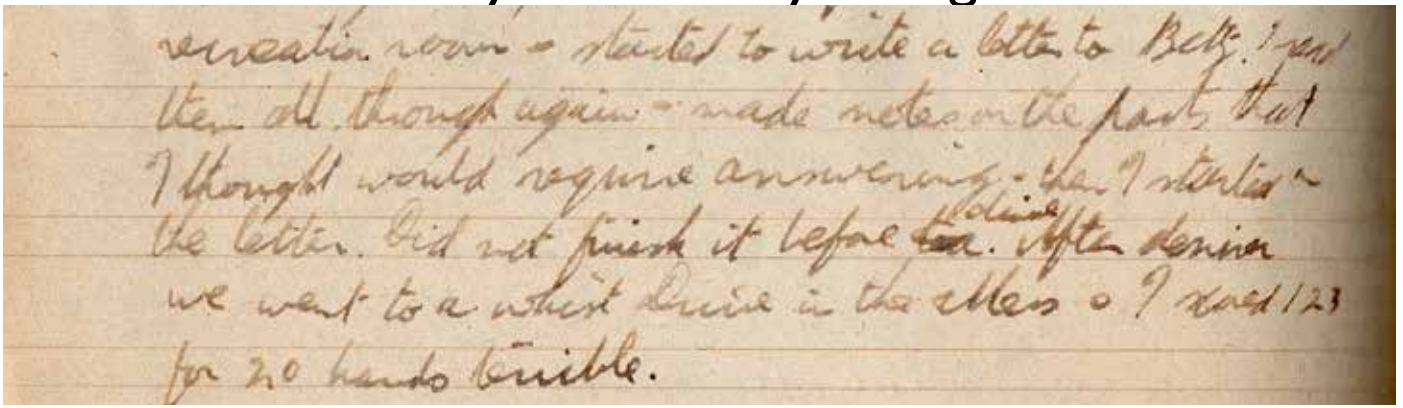 recreation room & started to write a letter to Betty. I read
them all through again & made notes on the parts that
I thought would require answering & then I started on
the letter. Did not finish it before dinner. After dinner
we went to a whist drive in the Mess & I scored 123
for 20 hands terrible.